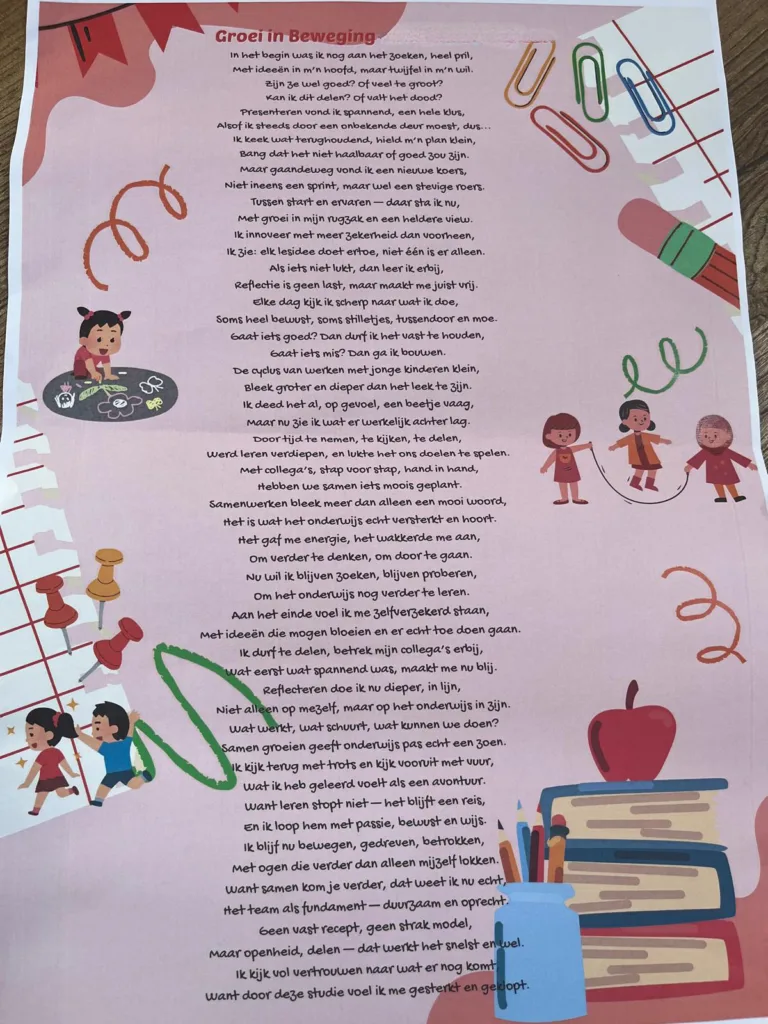 Groei in Beweging
In het begin was ik nog aan het zoeken, heel pril,
Met ideeën in m'n hoofd, maar twijfel in m'n wil.
Zijn ze wel goed? Of veel te groot?
Kan ik dit delen? Of valt het dood?
Presenteren vond ik spannend, een hele klus,
Alsof ik steeds door een onbekende deur moest, dus...
Ik keek wat terughoudend, hield m'n plan klein,
Bang dat het niet haalbaar of goed zou zijn.
Maar gaandeweg vond ik een nieuwe koers,
Niet ineens een sprint, maar wel een stevige roers.
Tussen start en ervaren — daar sta ik nu,
Met groei in mijn rugzak en een heldere view.
Ik innoveer met meer zekerheid dan voorheen,
Ik zie: elk lesidee doet ertoe, niet één is er alleen.
Als iets niet lukt, dan leer ik erbij,
Reflectie is geen last, maar maakt me juist vrij.
Elke dag kijk ik scherp naar wat ik doe,
Soms heel bewust, soms stilletjes, tussendoor en moe.
Gaat iets goed? Dan durf ik het vast te houden,
Gaat iets mis? Dan ga ik bouwen.
De cyclus van werken met jonge kinderen klein,
Bleek groter en dieper dan het leek te zijn.
Ik deed het al, op gevoel, een beetje vaag,
Maar nu zie ik wat er werkelijk achter lag.
Door tijd te nemen, te kijken, te delen,
Werd leren verdiepen, en lukte het ons doelen te spelen.
Met collega's, stap voor stap, hand in hand,
Hebben we samen iets moois geplant.
Samenwerken bleek meer dan alleen een mooi woord,
Het is wat het onderwijs echt versterkt en hoort.
Het gaf me energie, het wakkerde me aan,
Om verder te denken, om door te gaan.
Nu wil ik blijven zoeken, blijven proberen,
Om het onderwijs nog verder te leren.
Aan het einde voel ik me zelfverzekerd staan,
Met ideeën die mogen bloeien en er echt toe doen gaan.
Ik durf te delen, betrek mijn collega's erbij,
Wat eerst wat spannend was, maakt me nu blij.
Reflecteren doe ik nu dieper, in lijn,
Niet alleen op mezelf, maar op het onderwijs in zijn.
Wat werkt, wat schuurt, wat kunnen we doen?
Samen groeien geeft onderwijs pas echt een zoen.
Ik kijk terug met trots en kijk vooruit met vuur,
Wat ik heb geleerd voelt als een avontuur.
Want leren stopt niet — het blijft een reis,
En ik loop hem met passie, bewust en wijs.
Ik blijf nu bewegen, gedreven, betrokken,
Met ogen die verder dan alleen mijzelf lokken.
Want samen kom je verder, dat weet ik nu echt,
Het team als fundament — duurzaam en oprecht.
Geen vast recept, geen strak model,
Maar openheid, delen — dat werkt het snelst en wel.
Ik kijk vol vertrouwen naar wat er nog komt,
Want door deze studie voel ik me gesterkt en geklopt.